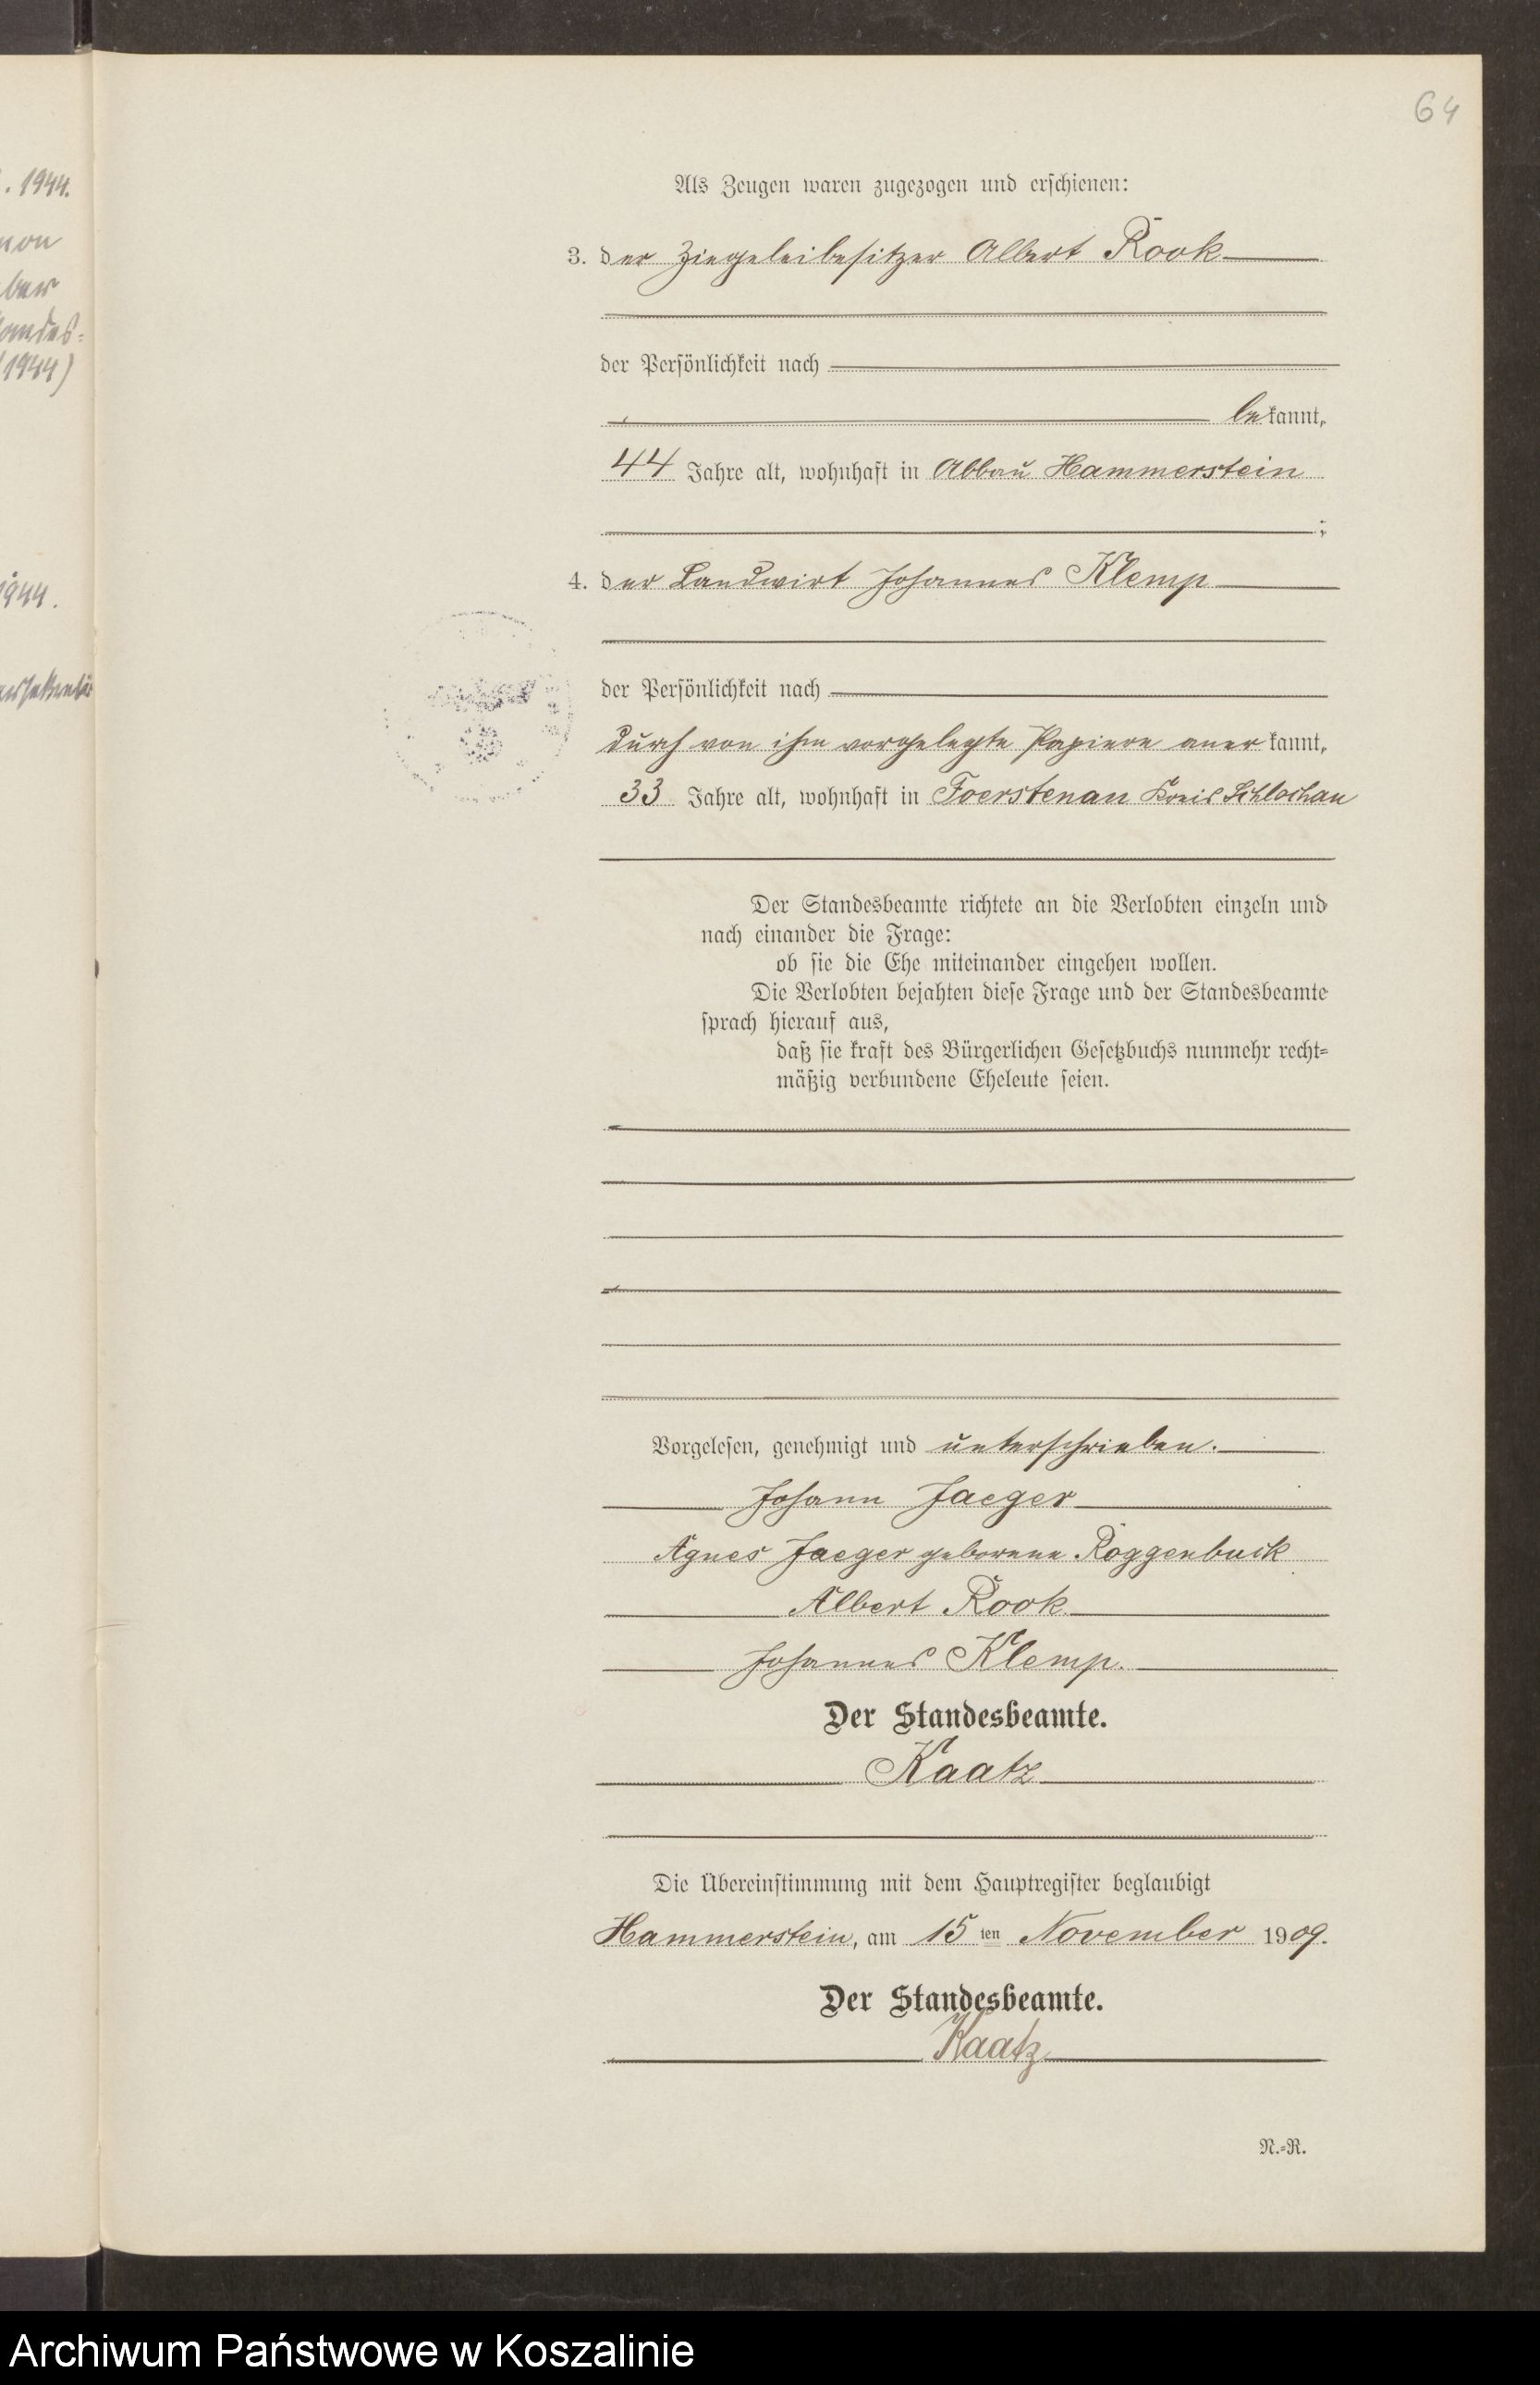 64
. 1944.
1944)
1944.
Als Zeugen waren zugezogen und erschienen:
3. der Ziegeleibesitzer Albert Rook
der Persönlichkeit nach
bekannt,
44 Jahre alt, wohnhaft in Abbau Hammerstein
;
4. der Landwirt Johannes Klemp
der Persönlichkeit nach
durch von ihm vorgelegte Papiere anerkannt,
33 Jahre alt, wohnhaft in Foerstenau Kreis Schlochau
Der Standesbeamte richtete an die Verlobten einzeln und
nach einander die Frage:
ob sie die Ehe miteinander eingehen wollen.
Die Verlobten bejahten diese Frage und der Standesbeamte
sprach hierauf aus,
daß sie kraft des Bürgerlichen Gesetzbuchs nunmehr recht-
mäßig verbundene Eheleute seien.
Vorgelesen, genehmigt und unterschrieben.
Johann Jaeger
Agnes Jaeger geborene Roggenbuck
Albert Rook
Johannes Klemp.
Der Standesbeamte.
Kaatz
Die Übereinstimmung mit dem Hauptregister beglaubigt
Hammerstein, am 15 ten November 1909.
Der Standesbeamte.
Kaatz
N.-R.
Archiwum Państwowe w Koszalinie